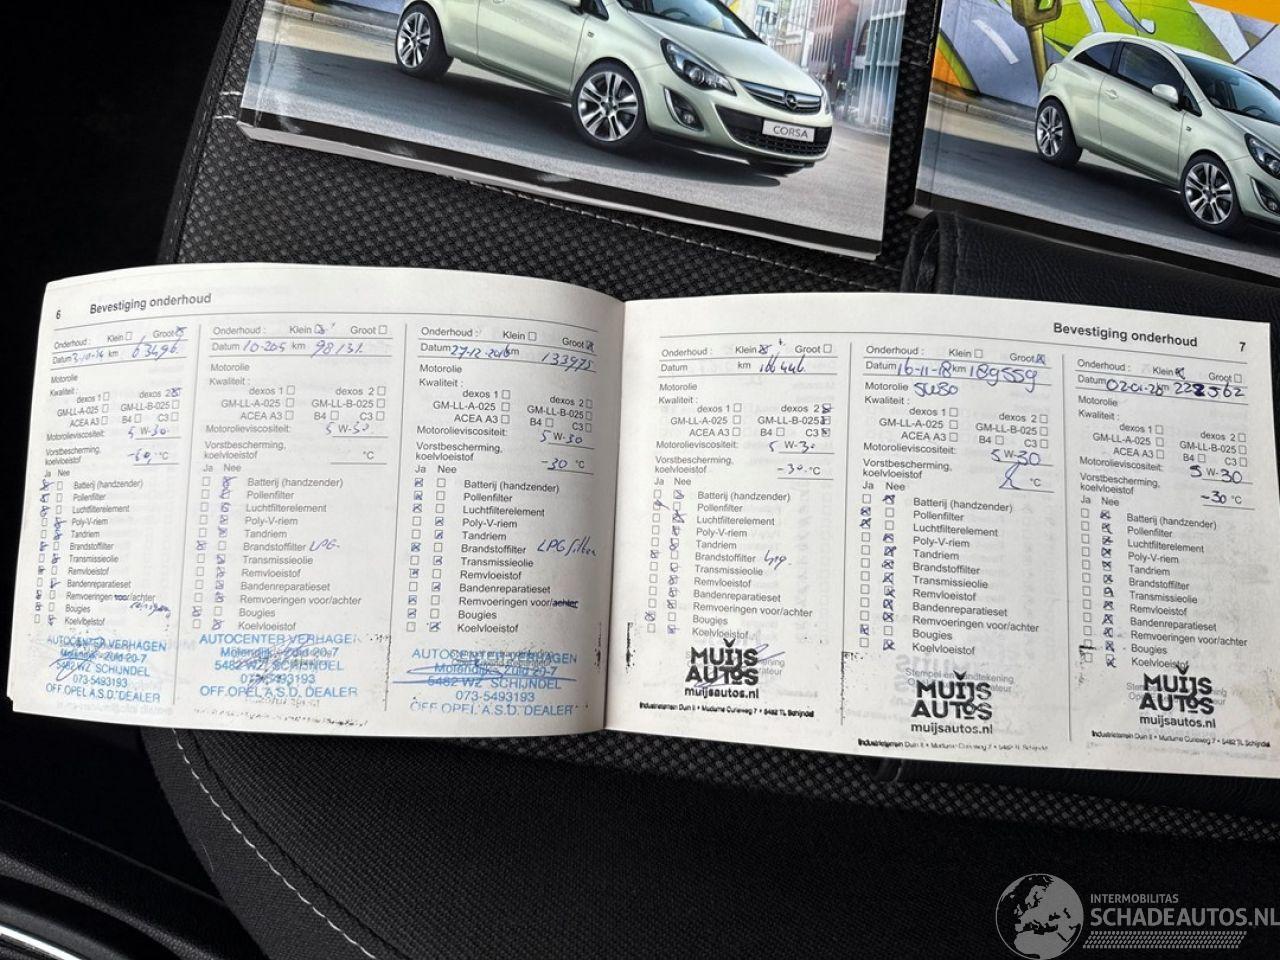 CORSA
6 Bevestiging onderhoud
Onderhoud : Klein Groot
Datum 3-10-14 km 63496
Motorolie
Kwaliteit :
dexos 1 dexos 2
GM-LL-A-025 GM-LL-B-025
ACEA A3 B4 C3
Motorolieviscositeit: 5 W-30
Vorstbescherming, koelvloeistof °C
Ja Nee
Batterij (handzender)
Pollenfilter
Luchtfilterelement
Poly-V-riem
Tandriem
Brandstoffilter
Transmissieolie
Remvloeistof
Bandenreparatieset
Remvoeringen voor/achter
Bougies
Koelvloeistof
AUTOCENTER VERHAGEN
Molendijk - Zuid 20-7
5482 WZ SCHIJNDEL
073-5493193
OFF.OPEL A.S.D. DEALER
Onderhoud : Klein Groot
Datum 10-2015 km 98131
Motorolie
Kwaliteit :
dexos 1 dexos 2
GM-LL-A-025 GM-LL-B-025
ACEA A3 B4 C3
Motorolieviscositeit: 5 W-30
Vorstbescherming, koelvloeistof °C
Ja Nee
Batterij (handzender)
Pollenfilter
Luchtfilterelement
Poly-V-riem
Tandriem
Brandstoffilter LPG
Transmissieolie
Remvloeistof
Bandenreparatieset
Remvoeringen voor/achter
Bougies
Koelvloeistof
AUTOCENTER VERHAGEN
Molendijk - Zuid 20-7
5482 WZ SCHIJNDEL
073-5493193
OFF.OPEL A.S.D. DEALER
Onderhoud : Klein Groot
Datum 27-12-2016 km 133975
Motorolie
Kwaliteit :
dexos 1 dexos 2
GM-LL-A-025 GM-LL-B-025
ACEA A3 B4 C3
Motorolieviscositeit: 5 W-30
Vorstbescherming, koelvloeistof -30 °C
Ja Nee
Batterij (handzender)
Pollenfilter
Luchtfilterelement
Poly-V-riem
Tandriem
Brandstoffilter LPG filter
Transmissieolie
Remvloeistof
Bandenreparatieset
Remvoeringen voor/achter
Bougies
Koelvloeistof
AUTOCENTER VERHAGEN
Molendijk - Zuid 20-7
5482 WZ SCHIJNDEL
073-5493193
OFF.OPEL A.S.D. DEALER
Bevestiging onderhoud 7
Onderhoud : Klein Groot
Datum km 166446
Motorolie
Kwaliteit :
dexos 1 dexos 2
GM-LL-A-025 GM-LL-B-025
ACEA A3 B4 C3
Motorolieviscositeit: 5 W-30
Vorstbescherming, koelvloeistof -30 °C
Ja Nee
Batterij (handzender)
Pollenfilter
Luchtfilterelement
Poly-V-riem
Tandriem
Brandstoffilter
Transmissieolie
Remvloeistof
Bandenreparatieset
Remvoeringen voor/achter
Bougies
Koelvloeistof
MUIJS
AUTOS
muijsautos.nl
Industrieterrein Duin II • Madame Curieweg 7 • 5482 TL Schijndel
Onderhoud : Klein Groot
Datum 16-11-18 km 189559
Motorolie 5W30
Kwaliteit :
dexos 1 dexos 2
GM-LL-A-025 GM-LL-B-025
ACEA A3 B4 C3
Motorolieviscositeit: 5 W-30
Vorstbescherming, koelvloeistof °C
Ja Nee
Batterij (handzender)
Pollenfilter
Luchtfilterelement
Poly-V-riem
Tandriem
Brandstoffilter
Transmissieolie
Remvloeistof
Bandenreparatieset
Remvoeringen voor/achter
Bougies
Koelvloeistof
MUIJS
AUTOS
muijsautos.nl
Industrieterrein Duin II • Madame Curieweg 7 • 5482 TL Schijndel
Onderhoud : Klein Groot
Datum km
Motorolie
Kwaliteit :
dexos 1 dexos 2
GM-LL-A-025 GM-LL-B-025
ACEA A3 B4 C3
Motorolieviscositeit: 5 W-30
Vorstbescherming, koelvloeistof -30 °C
Ja Nee
Batterij (handzender)
Pollenfilter
Luchtfilterelement
Poly-V-riem
Tandriem
Brandstoffilter
Transmissieolie
Remvloeistof
Bandenreparatieset
Remvoeringen voor/achter
Bougies
Koelvloeistof
MUIJS
AUTOS
muijsautos.nl
Industrieterrein Duin II • Madame Curieweg 7 • 5482 TL Schijndel
INTERMOBILITAS
SCHADEAUTOS.NL